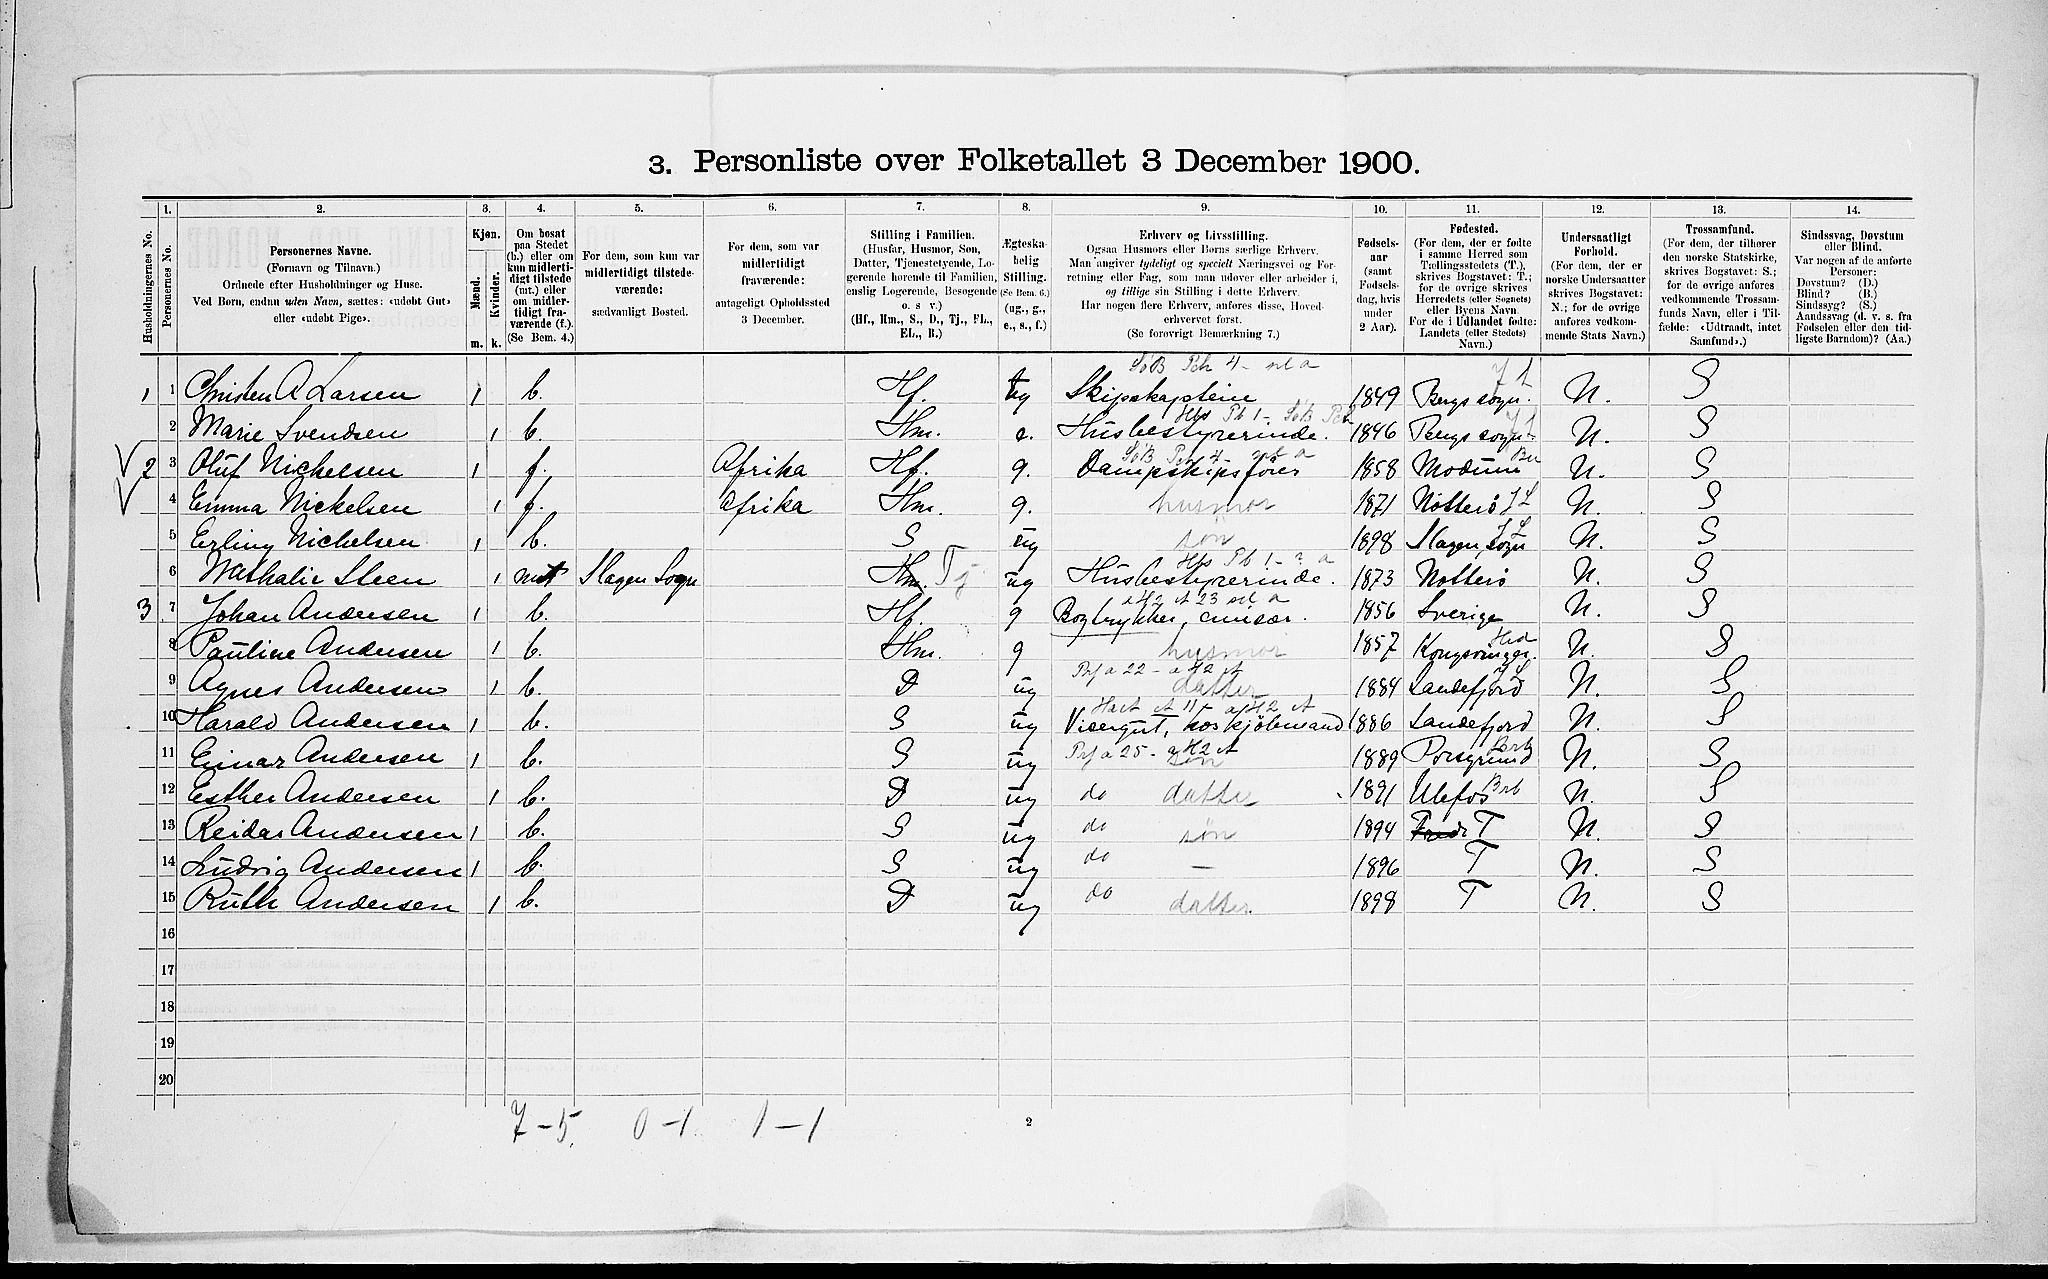 3. Personliste over Folketallet 3 December 1900.
1. 2. 3. 4. 5. 6. 7. 8. 9. 10. 11. 12. 13. 14.
Husholdningernes No.
Personernes No.
Personernes Navne.
(Fornavn og Tilnavn.)
Ordnede efter Husholdninger og Huse.
Ved Børn, endnu uden Navn, sættes: «udøbt Gut»
eller «udøbt Pige».
Kjøn.
Mænd.
Kvinder.
m. k.
Om bosat
paa Stedet
(b.) eller om
kun midlerti-
digt tilstede
(mt.) eller
om midler-
tidigt fra-
værende (f.).
(Se Bem. 4.)
For dem, som kun var
midlertidigt tilstede-
værende:
sædvanligt Bosted.
For dem, som var
midlertidigt
fraværende:
antageligt Opholdssted
3 December.
Stilling i Familien.
(Husfar, Husmor, Søn,
Datter, Tjenestetyende, Lo-
gerende hørende til Familien,
enslig Logerende, Besøgende
o. s. v.)
(Hf., Hm., S., D., Tj., FL.,
EL., B.)
Ægteska-
belig
Stilling.
(Se Bem. 6.)
(ug., g.,
e., s., f.)
Erhverv og Livsstilling.
Ogsaa Husmors eller Børns særlige Erhverv.
Man angiver tydeligt og specielt Næringsvei og For-
retning eller Fag, som man udøver eller arbeider i,
og tillige sin Stilling i dette Erhverv.
Har nogen flere Erhverv, anføres disse, Hoved-
erhvervet først.
(Se forøvrigt Bemærkning 7.)
Fødsels-
aar
(samt
Fødsels-
dag, hvis
under
2 Aar).
Fødested.
(For dem, der er fødte
i samme Herred som
Tællingsstedets (T.),
skrives Bogstavet: T.;
for de øvrige skrives
Herredets (eller Sognets)
eller Byens Navn.
For de i Udlandet fødte:
Landets (eller Stedets)
Navn.)
Undersaatligt
Forhold.
(For dem, der er
norske Undersaatter
skrives Bogstavet:
N.; for de øvrige
anføres vedkom-
mende Stats Navn.)
Trossamfund.
(For dem, der tilhører
den norske Statskirke,
skrives Bogstavet: S.;
for de øvrige anføres
vedkommende Trossam-
funds Navn, eller i Til-
fælde: «Udtraadt, intet
Samfund».)
Sindssvag, Døvstum
eller Blind.
Var nogen af de anførte
Personer:
Døvstum? (D.)
Blind? (B.)
Sindssyg? (S.)
Aandssvag (d. v. s. fra
Fødselen eller den tid-
ligste Barndom)? (Aa.)
1 1 Christen A Larsen 1 b. Hf. ug Skipskaptein 1849 Bergs sogn. N. S
2 Marie Svendsen 1 b. Hm. e. Husbestyrerinde. 1846 Bergs sogn N. S
2 3 Oluf Nickelsen 1 f. Afrika Hf. g. Dampskipsfører 1858 Modum N. S
4 Emma Nickelsen 1 f. Afrika Hm. g. husmor 1871 Nøtterø JL N. S
5 Erling Nickelsen 1 b. S ug søn 1898 Slagen, Sogn N. S
6 Nathalie Steen 1 mt Slagen Sogn Hm. Tj ug Husbestyrerinde. 1873 Nøtterø N. S
3 7 Johan Andersen 1 b. Hf. g Bogtrykker, 1856 Sverige N. S
8 Pauline Andersen 1 b. Hm. g husmor 1857 Kongsvinger. N. S
9 Agnes Andersen 1 b. D ug datter 1884 Sandefjord N. S
10 Harald Andersen 1 b. S ug Visergut, hos kjøbmand 1886 Sandefjord N. S
11 Einar Andersen 1 b. S ug søn 1889 Porsgrund N. S
12 Esther Andersen 1 b. D ug do datter 1891 Ulefos N. S
13 Reidar Andersen 1 b. S ug do søn 1894 T N. S
14 Ludvig Andersen 1 b. S ug do — 1896 T N. S
15 Ruth Andersen 1 b. D ug do datter. 1898 T N. S
16
17
18
19
20
7-5. 0-1. 1-1
2